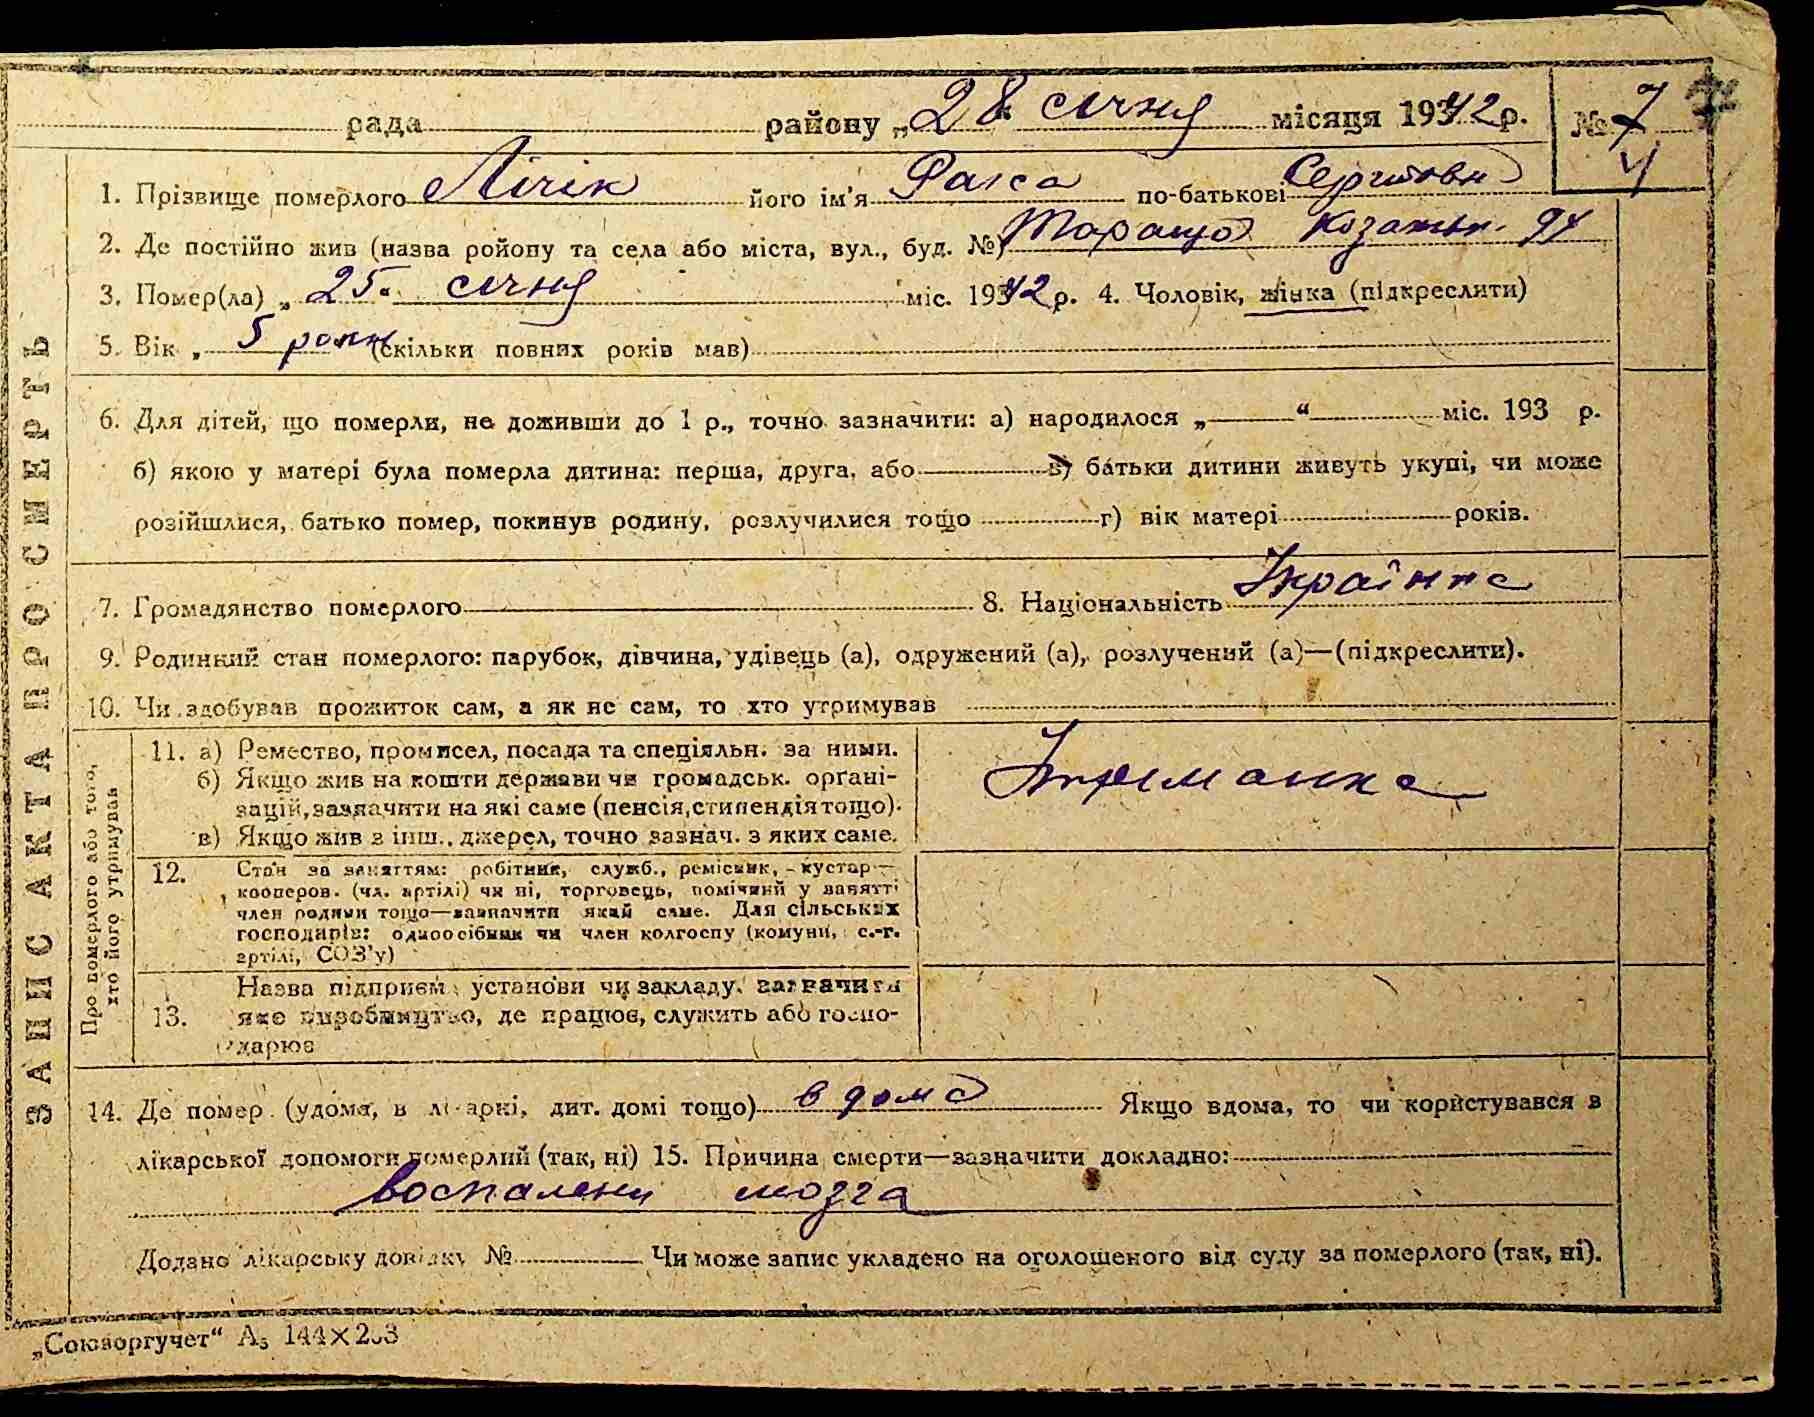 рада району „28 січня місяця 1942 р. № 7
4
1. Прізвище померлого Лічік його ім'я Раиса по-батькові
2. Де постійно жив (назва ройону та села або міста, вул., буд. №) Тараща 94
3. Помер(ла) „ 25. січня міс. 1942 р. 4. Чоловік, жінка (підкреслити)
5. Вік „ 5 роки (скільки повних років мав)
6. Для дітей, що померли, не доживши до 1 р., точно зазначити: а) народилося „ “ міс. 193 р.
б) якою у матері була померла дитина: перша, друга, або в) батьки дитини живуть укупі, чи може
розійшлися, батько помер, покинув родину, розлучилися тощо г) вік матері років.
7. Громадянство померлого 8. Національність Українка
9. Родинний стан померлого: парубок, дівчина, удівець (а), одружений (а), розлучений (а)—(підкреслити).
10. Чи здобував прожиток сам, а як не сам, то хто утримував
ЗАПИС АКТА ПРО СМЕРТЬ
Про померлого або того,
хто його утримував
11. а) Ремество, промисел, посада та спеціяльн. за ними.
б) Якщо жив на кошти держави чи громадськ. орґані-
зацій, зазначити на які саме (пенсія, стипендія тощо).
в) Якщо жив з інш. джерел, точно зазнач. з яких саме.
Утриманка
12. Стан за заняттям: робітник, служб., ремісник, - кустар —
кооперов. (чл. артілі) чи ні, торговець, помічний у занятті
член родини тощо—зазначити який саме. Для сільських
господарів: одноосібник чи член колгоспу (комуни, с.-г.
артілі, СОЗ'у)
Назва підприєм. установи чи закладу, зазначити
13. яке виробництво, де працює, служить або госпо-
дарює
14. Де помер (удома, в лікарні, дит. домі тощо) в дома Якщо вдома, то чи користувався в
лікарської допомоги померлий (так, ні) 15. Причина смерти—зазначити докладно:
воспалени мозга
Додано лікарську довідку № Чи може запис укладено на оголошеного від суду за померлого (так, ні).
„Союзоргучет“ А5 144×203